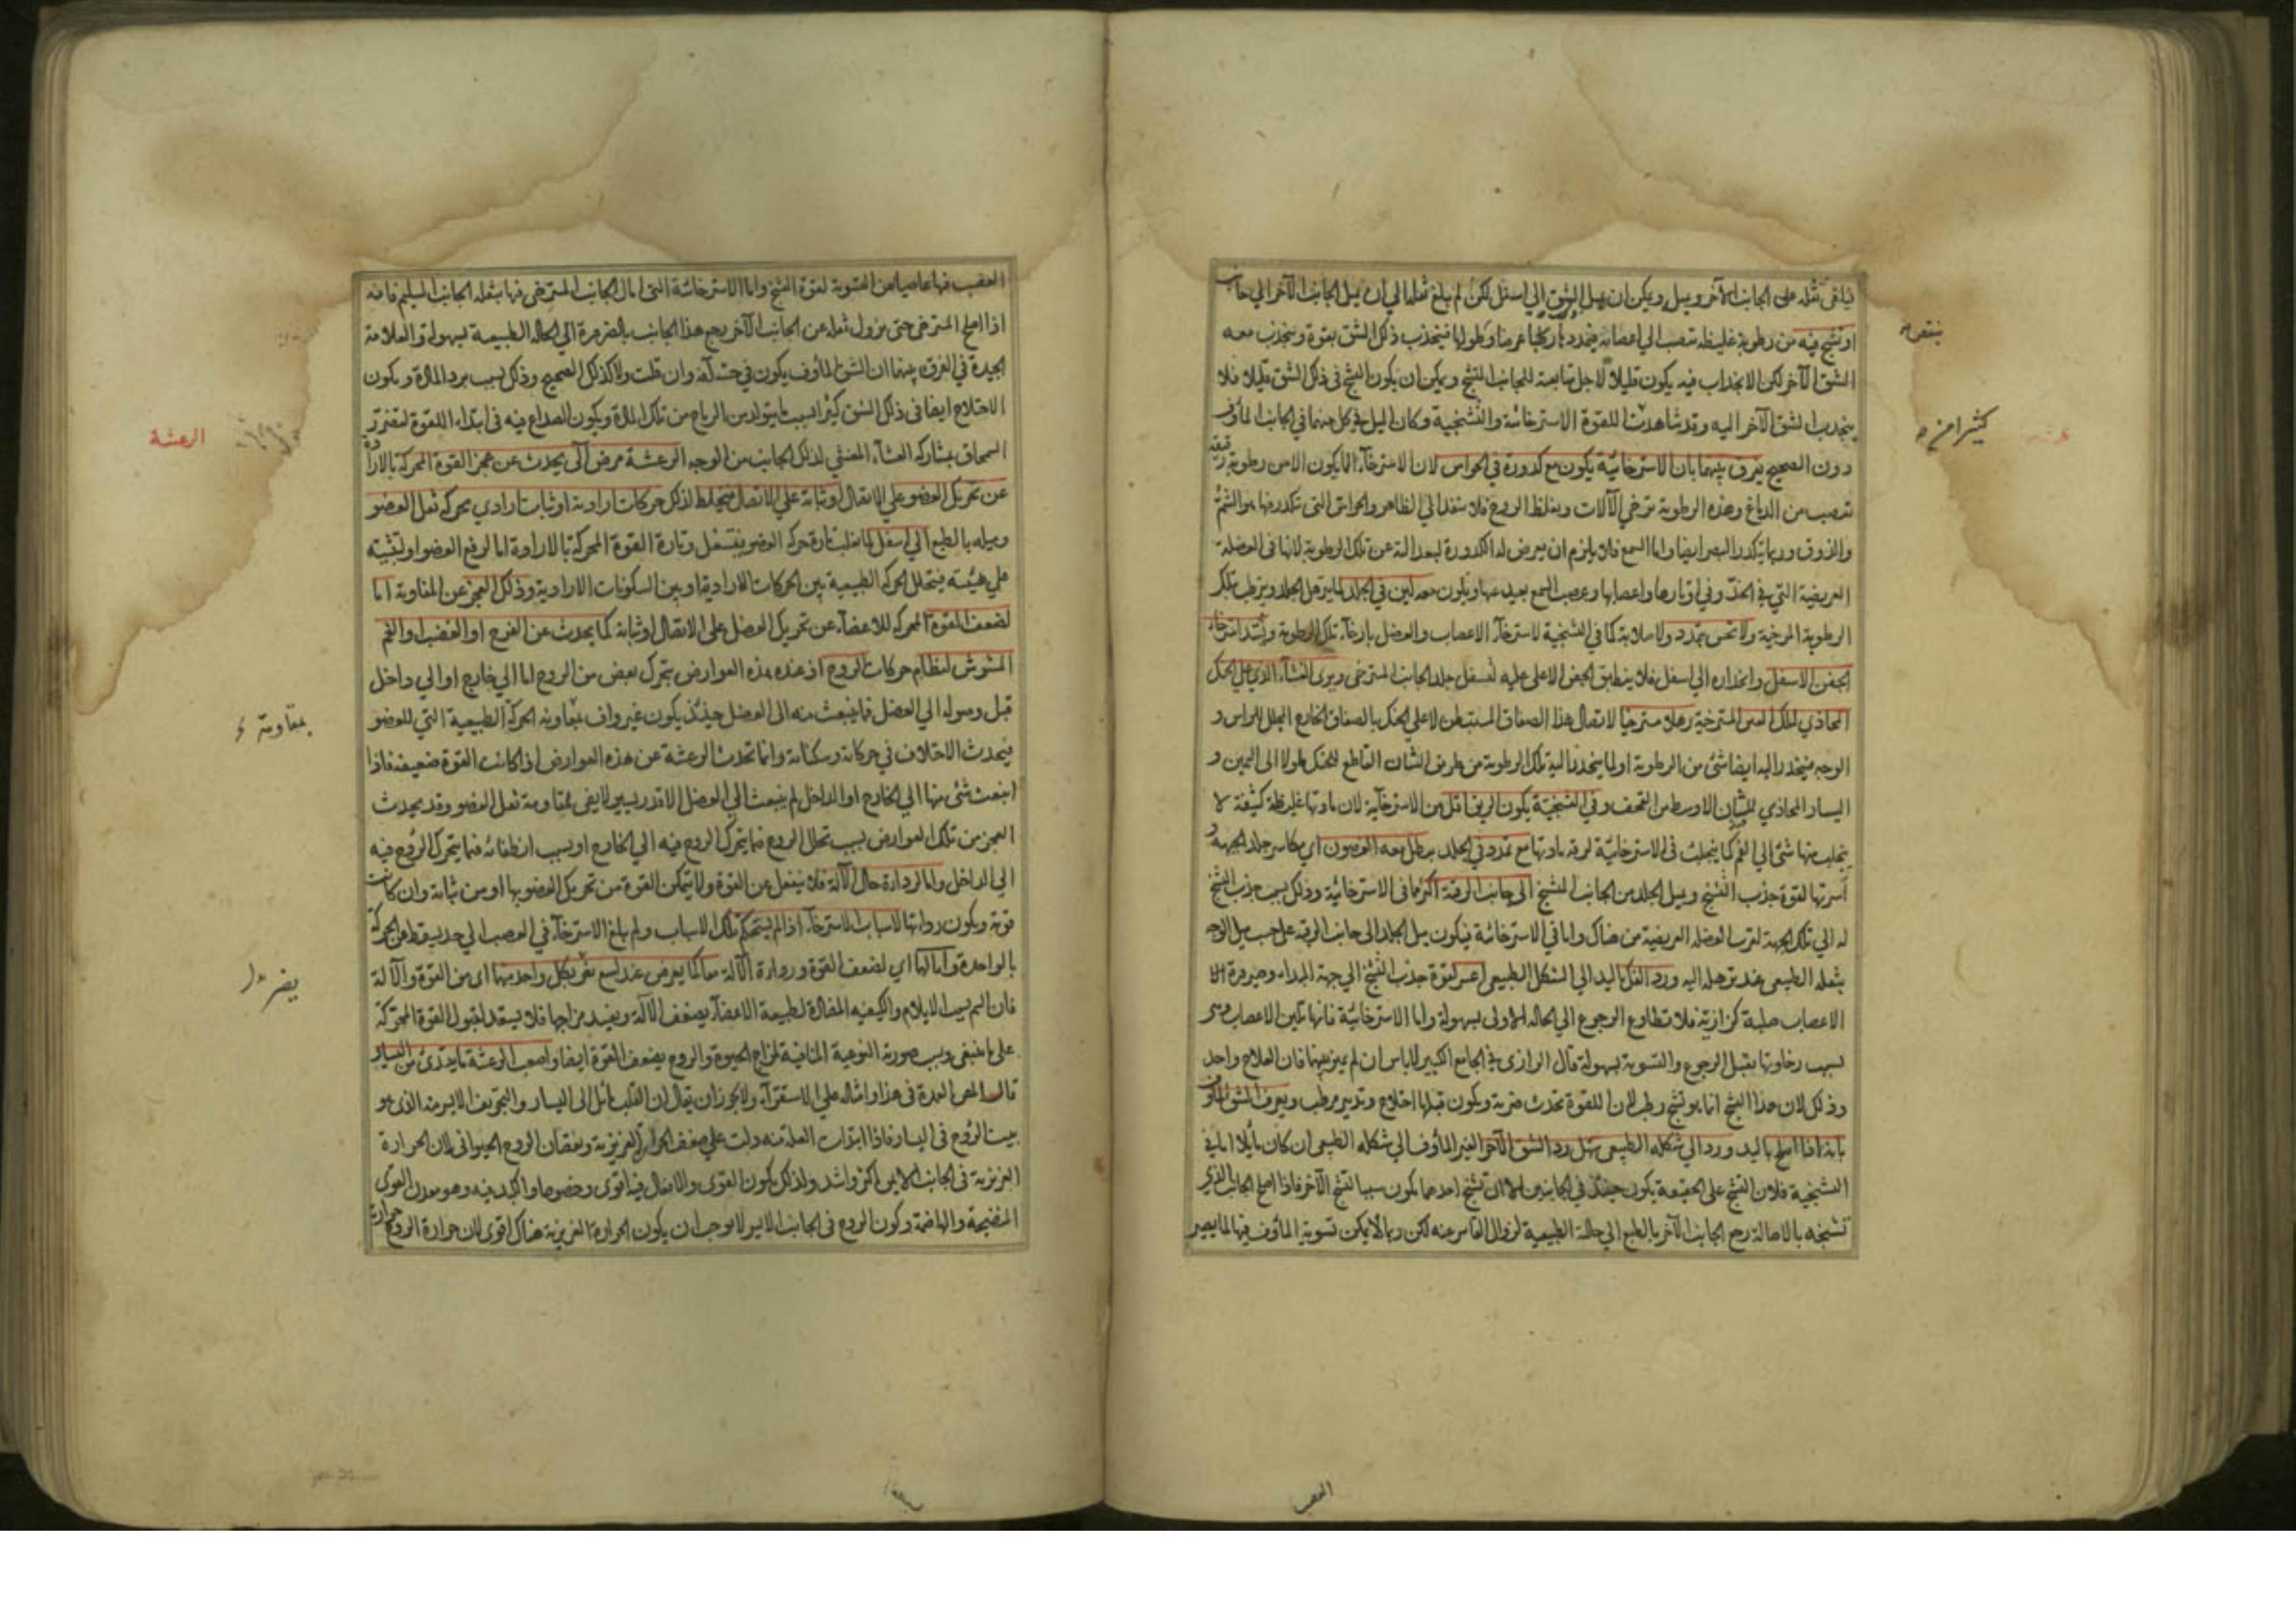 فيلقى ثقله على الجانب الآخر ويميل ويمكن ان يميل الشق الي اسفل لكن لم يبلغ ثقله الي ان يميل الجانب الآخر الي جانب
او تشنج فيه من رطوبة غليظة تنصب الي اعصابه فيتمدد عرضا وطولها فينجذب ذلك الشق بقوة وينجذب معه
الشق الآخر لكن الانجذاب فيه يكون قليلا لاجل متابعة للجانب المتشنج ويمكن ان يكون التشنج في ذلك الشق قليلا فلا
ينجذب الشق الآخر اليه وقد شاهدت اللقوة الاسترخائية والتشنجية وكان الميل في كل منهما في الجانب المأوف
دون الصحيح يفرق بينهما بان الاسترخائية يكون مع كدورة في الحواس لان الاسترخاء انما يكون الا من رطوبة رقيقة
تنصب من الدماغ وهذه الرطوبة ترخي الآلات ويغلظ الروح فلا ينفذ الي الظاهر والحواس التي تتكدر فيها هو الشم
والذوق وربما يتكدر البصر ايضا واما السمع فلا يلزم ان يعرض له الكدورة لبعد الته عن تلك الرطوبة لانها في العضلة
العريضية التي في الخد وفي اوتارها واعصابها وعصب السمع بعيد عنها ويكون معه لين في الجلد لما يترهل الجلد ويترطب بتلك
الرطوبة المرخية ولا تحس بتمدد ولا صلابة كما في التشنجية لاسترخاء الاعصاب والعضل بارخاء تلك الرطوبة ويشتد استرخاء
الجفن الاسفل وانحداره الي اسفل فلا ينطبق الجفن الاعلى عليه لتسفل جلد الجانب المسترخي ويرى الغشاء الذي على الحنك
المحاذي لتلك العين المسترخية رهلا مسترخيا لاتصال هذا الصفاق المستبطن لاعلي الحنك بالصفاق الخارج المجلل للراس و
الوجه فينحدر اليه ايضا شئ من الرطوبة او لما ينحدر اليه تلك الرطوبة من طريق الشان القاطع للحنك طولا الى اليمين و
اليسار المحاذي للشان الاوسط من القحف وفي التشنجية يكون الريق اقل من الاسترخائية لان مادتها غليظة كثيفة لا
ينجلب منها شئ الي الفم كما ينجلب في الاسترخائية لرقة مادتها مع تمدد في الجلد يبطل معه الغضون اي مكاسر جلد الجبهة و
اسرتها لقوة جذب التشنج ويميل الجلد من الجانب المتشنج الى جانب الرقبة اكثر مما في الاسترخائية وذلك بسبب جذب التشنج
له الي تلك الجهة لقرب العضلة العريضية من هناك واما في الاسترخائية فيكون ميل الجلد الى جانب الرقبة على حسب ميل الوجه
بثقله الطبيعي عند ترهله اليه ورد الفك باليد الي الشكل الطبيعي اعسر لقوة جذب التشنج الي جهة المبداء وصيرورة
الاعصاب صلبة كزازية فلا تطاوع الرجوع الي الحالة الاولى بسهولة واما الاسترخائية فانها تلين الاعصاب وهي
بسبب رخاوتها يقبل الرجوع والتسوية بسهولة قال الرازي في الجامع الكبير لا باس ان لم يميز بينهما فان العلاج واحد
وذلك لان هذا التشنج انما هو تشنج رطب لان اللقوة تحدث ضربة ويكون قبلها اختلاج وتدبير مرطب ويعرف الشق المأوف
بانه اذا اصلح باليد ورد الي شكله الطبيعي سهل رد الشق الآخر الغير المأوف الي شكله الطبيعي ان كان مائلا اما في
التشنجية فلان التشنج على الحقيقة يكون حينئذ في الجانبين الا ان تشنج احدهما يكون سببا لتشنج الآخر فاذا اصلح الجانب الذي
تشنجه بالاصالة رجع الجانب الآخر بالطبع الي حالة الطبيعية لزوال القاسر عنه لكن ربما لا يمكن تسوية المأوف فيها لما يصير
كثيرا من
العصب
العصب فيها عاصيا عن التسوية لقوة التشنج واما الاسترخائية التي امال الجانب المسترخي فيها بثقله الجانب السليم فانه
اذا اصلح المسترخي حتى يزول ثقله عن الجانب الآخر يرجع هذا الجانب بالضرورة الي الحالة الطبيعية بسهولة والعلامة
الجيدة في الفرق بينهما ان الشق المأوف يكون في حسه آفة وان قلت ولا كذلك الصحيح وذلك بسبب برد المادة ويكون
الاختلاج ايضا في ذلك الشق كثيرا لسبب ما يتولد من الرياح من تلك المادة ويكون الصداع فيه في ابتداء اللقوة لتضرر
السمحاق بمشاركة الغشاء المغشي لذلك الجانب من الوجه الرعشة مرض آلي يحدث عن عجز القوة المحركة بالارادة
عن تحريك العضو على الاتصال او ثباته علي الاتصال فيختلط لذلك حركات ارادية او ثبات ارادي بحركة ثقل العضو
وميله بالطبع الي اسفل كما يغلب تارة حركة العضو بتسفل وتارة القوة المحركة بالارادة اما لرفع العضو او لتثبيته
علي هيئته فيتخلل الحركة الطبيعية بين الحركات الارادية او بين السكونات الارادية وذلك العجز عن المقاومة اما
لضعف القوة المحركة للاعضاء عن تحريك العضل على الاتصال او ثباته كما يحدث عن الفرح او الغضب او الغم
المشوش لنظام حركات الروح اذ عند هذه العوارض يتحرك بعض من الروح اما الي خارج او الي داخل
قبل وصوله الي العضل فما ينبعث منه الى العضل حينئذ يكون غير واف بمعاونه الحركة الطبيعية التي للعضو
فيحدث الاختلاف في حركاته وسكناته وانما تحدث الرعشة عن هذه العوارض اذا كانت القوة ضعيفة فاذا
انبعث شئ منها الي الخارج او الداخل لم ينبعث الي العضل الا قدر يسير لا يفي بمقاومة ثقل العضو وقد يحدث
العجز من تلك العوارض بسبب تحلل الروح فيما يتحرك الروح فيه الي الخارج او بسبب انطفائه فيما يتحرك الروح فيه
الي الداخل واما لرداءة حال الآلة فلا ينفعل عن القوة ولا يتمكن القوة من تحريك العضو بها او من ثباته وان كانت
قوية ويكون رداءتها لاسباب الاسترخاء اذا لم يستحكم تلك الاسباب ولم يبلغ الاسترخاء في العصب الي حد يسقط عن الحركة
بالواحدة واما لهما اي لضعف القوة ورداءة الآلة معا كما يعرض عند لسع مضر بكل واحد منهما اي من القوة والآلة
فان السم بسبب الايلام والكيفية المضادة لطبيعة الاعضاء يضعف الآلة ويفسد مزاجها فلا يستعد لقبول القوة المحركة
على ما ينبغي وبسبب صورته النوعية المنافية لمزاج الحيوة والروح يضعف القوة ايضا واصعب الرعشة ما يبتدئ من اليسار
قال المص العمدة في هذا وامثاله علي الاستقراء ولا يجوز ان يقال ان القلب مائل الى اليسار والتجويف الايسر منه الذي هو
بيت الروح في اليسار فاذا ابتدأت العلة منه دلت علي ضعف الحرارة الغريزية ونقصان الروح الحيواني لان الحرارة
الغريزية في الجانب الايمن اكثر واشد ولذلك يكون القوى والافعال فيه اقوى وخصوصا والكبد فيه وهو معدن القوى
المنضجة والهاضمة وكون الروح في الجانب الايسر لا يوجب ان يكون الحرارة الغريزية هناك اقوى لان حرارة الروح حرارة
الرعشة
بمقاومة
يضر